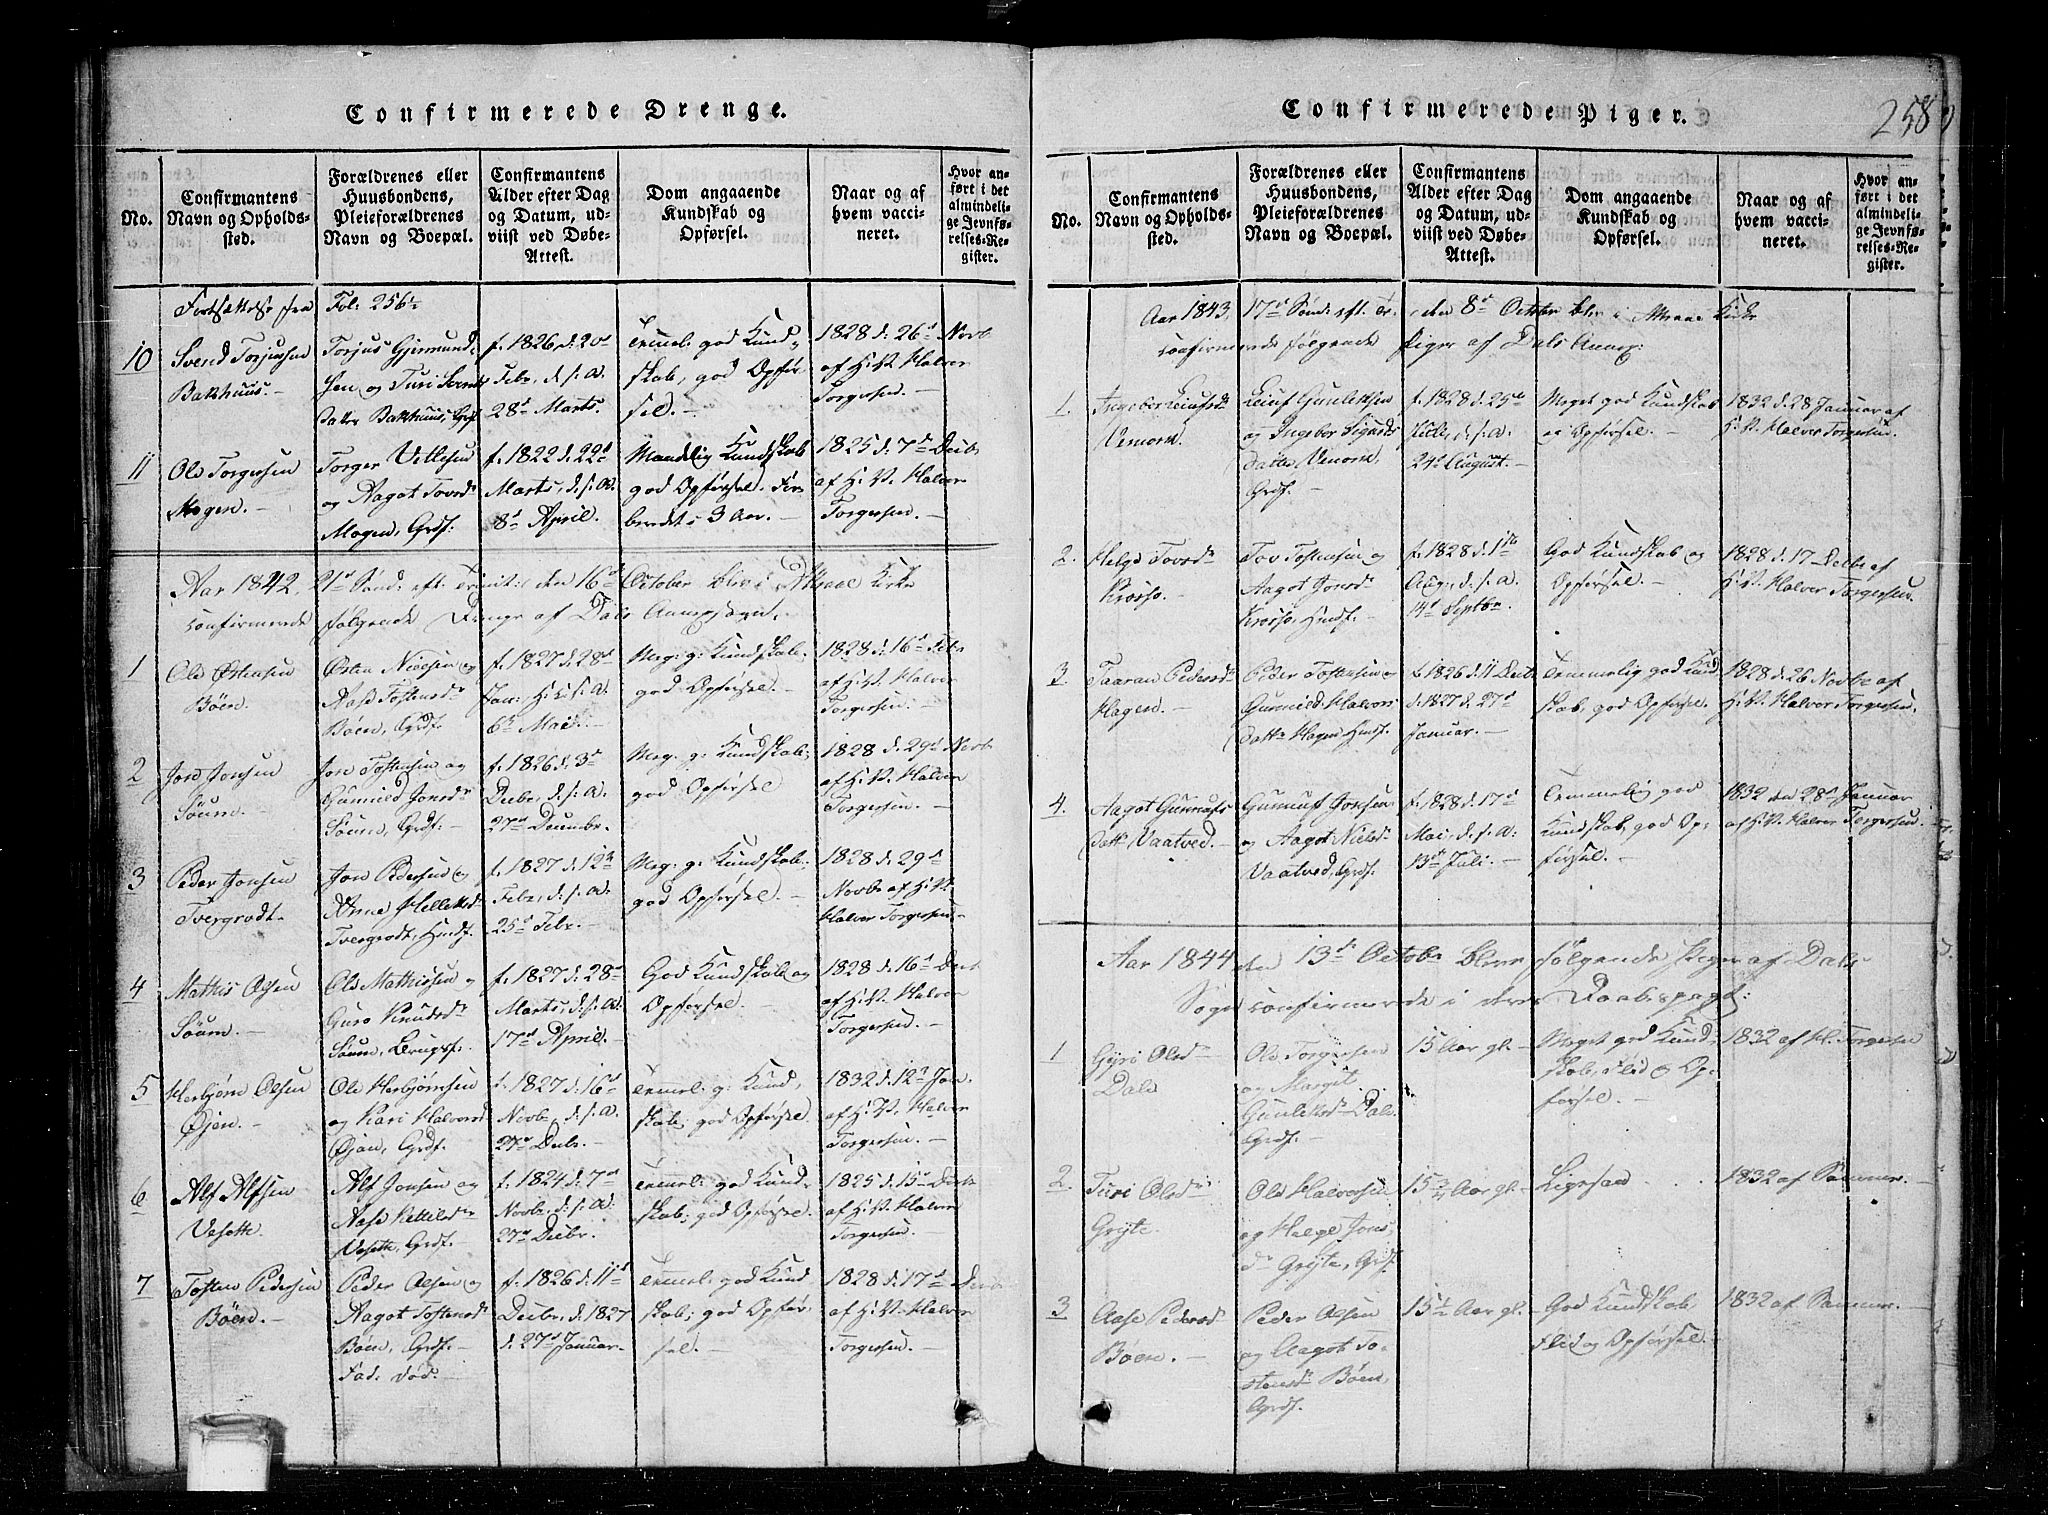 Confirmerede Drenge.
No.
Confirmantens
Navn og Opholds-
sted.
Forældrenes eller
Huusbondens,
Pleieforældrenes
Navn og Boepæl.
Confirmantens
Alder efter Dag
og Datum, ud-
viist ved Døbe-
Attest.
Dom angaaende
Kundskab og
Opførsel.
Naar og af
hvem vacci-
neret.
Hvor an-
ført i det
almindeli-
ge Jevnfø-
relses-Re-
gister.
Fortsættelse fra Fol: 256½
10
Svend Torjussen
Bakhuus.
Torjus Gjermund-
sen og Turi Svends
Datter Bakhuus, Grdf.
f. 1826, d. 20de
Febr, d. s. A.
28d Marts.
Temmel: god Kund-
skab, god Opfør-
sel.
1828 d: 26d Novb
af H: V. Halvor
Torgersen.
11
Ole Torgersen
Mogen.
Torger Vettesen
og Aagot Tovsdr
Mogen, Grdf:
f. 1822 d. 22d
Marts, d. s. A.
8d April.
Maadelig Kundskab
god Opførsel. For
beredt i 3 Aar.
1825 d. 7d Decb
af H. V. Halvor
Torgersen.
Aar 1842, 21d Sønd: eft: Trinit: den 16d October blev i Attraae Kirke
confirmerede følgende Drenge af Dals Annexsogn.
1
Ole Østensen
Bøen.
Østen Nielsen og
Aase Tostensdr
Bøen, Grdf.
f. 1827 d. 28d
Jan: H. d. s. A.
6te Mai.
Meg: g: Kundskab,
god Opførsel.
1828 d: 16d Feb
af H. V. Halvor
Torgersen.
2
Jon Jonsen
Søum.
Jon Tostensen og
Gunnild Jonsdr
Søum, Grdf.
f. 1826 d. 3d
Decbr, d. s. A.
27de Decembr.
Meg: g: Kundskab,
god Opførsel
1828 d. 29d Novb
af H. V. Halvor
Torgersen.
3
Peder Jonsen
Tvergrodt.
Jon Pedersen og
Anne Helleksdr
Tvergrodt, Huusf.
f. 1827 d. 12te
Febr, d. s. A.
25d Febr.
Meg: g: Kundskab
god Opførsel.
1828 d. 29d
Novbr af H. V.
Halvor Torgersen.
4
Mathis Olsen
Søum.
Ole Mathissen og
Guro Knudsdr
Søum, Brugsf.
f. 1827 d: 28d
Marts, d. s. A.
17d April.
God Kundskab og
Opførsel
1828 d. 16d Decb
af H. V. Halvor
Torgersen.
5
Herbjørn Olsen
Øjen.
Ole Herbjørnsen
og Kari Halvorsd
Øjan, Grdf.
f. 1827 d. 16d
Novbr, d. s. A.
27de Decbr.
Temmel: g: Kund,
skab; god Opførsel.
1832 d. 12te Jan.
af H. V. Halvor
Torgersen.
6
Alf Alfsen
Vesette.
Alf Jonsen og
Aase Kittilsdr
Vesette, Grdf.
f. 1824 d. 7de
Novbr, d. s. A.
27de Decbr.
Temmel: god Kund-
skab; god Opførsel.
1825 d. 15de Decb
af H. V. Halvor
Torgersen.
7
Tosten Pedersen
Bøen.
Peder Olsen og
Aagot Tostensdr
Bøen, Grdf.
Fad. død.
f. 1826 d. 11te
Decbr, d. 1827
d. 27d Januar.
Temmel: god Kund
skab; god Opfør-
sel.
1828 d. 17d Decb
af H. V. Halvor
Torgersen.
Confirmerede Piger.
258
No.
Confirmantens
Navn og Opholds-
sted.
Forældrenes eller
Huusbondens,
Pleieforældrenes
Navn og Boepæl.
Confirmantens
Alder efter Dag
og Datum, ud-
viist ved Døbe-
Attest.
Dom angaaende
Kundskab og
Opførsel.
Naar og af
hvem vacci-
neret.
Hvor an-
ført i det
almindeli-
ge Jevnfø-
relses-Re-
gister.
Aar 1843, 17d Sønd: eft. Tr. den 8d October blev i Attraae Kirke
confirmerede følgende Piger af Dals Annex:
1.
Ingebor Leiufsdr
Vemork.
Leiuf Gunleksen
og Ingebor Sigurds
Datter Vemork,
Grdf.
f. 1828 d. 25de
Juli, d. s. A.
24d August.
Meget god Kundskab
og Opførsel.
1832 d. 28 Januar af
H. V. Halvor Torgersen.
2.
Helge Tovsdr
Krosso.
Tov Tostensen og
Aagot Jonsdr
Krosso, Huusf.
f. 1828 d. 1te
Aug., d. s. A.
14d Septbr
God Kundskab og
Opførsel.
1828 d. 17 Decbr af
H. V. Halvor Torgersen.
3.
Taaran Pedersdr
Hagen.
Peder Tostensen og
Gunnild Halvors
Datter Hagen Huusf.
f. 1826 d. 11 Decb
d. 1827 d. 27d
Januar.
Temmelig god Kund
skab, god Opførsel.
1828 d. 26 Novbr af
H. V. Halvor Torgersen.
4.
Aagot Gunnufs
Datt. Vaatved.
Gunnuf Jonsen
og Aagot Nielsdr
Vaatved, Grdf.
f. 1828 d. 17d
Mai, d. s. A:
13de Juli.
Temmelig god
Kundskab, god Op-
førsel.
1832 den 28d Januar
af H. V. Halvor Torgersen.
Aar 1844 den 13de Octobr bleve følgende Piger af Dals
Sogn confirmerede i deres Daabspagt:
1
Gyro Olsdr
Dale
Ole Torgersen
og Margit
Gunleksdr Dale
Grdf.
15 Aar gl.
Meget god Kund,
skab, Flid og Op-
førsel.
1832 af H. Torgersen
2.
Turi Olsdr
Grøjte.
Ole Halvorsen
og Helge Jons
dr Grøjte, Grdf.
15¾ Aar gl.
Ligesaa
1832 af Samme.
3
Aase Pedersdr
Bøen.
Peder Olsen
og Aagot To-
stensdr Bøen,
Grdf.
15½ Aar gl.
God Kundskab,
Flid og Opførsel.
1832 af Samme.